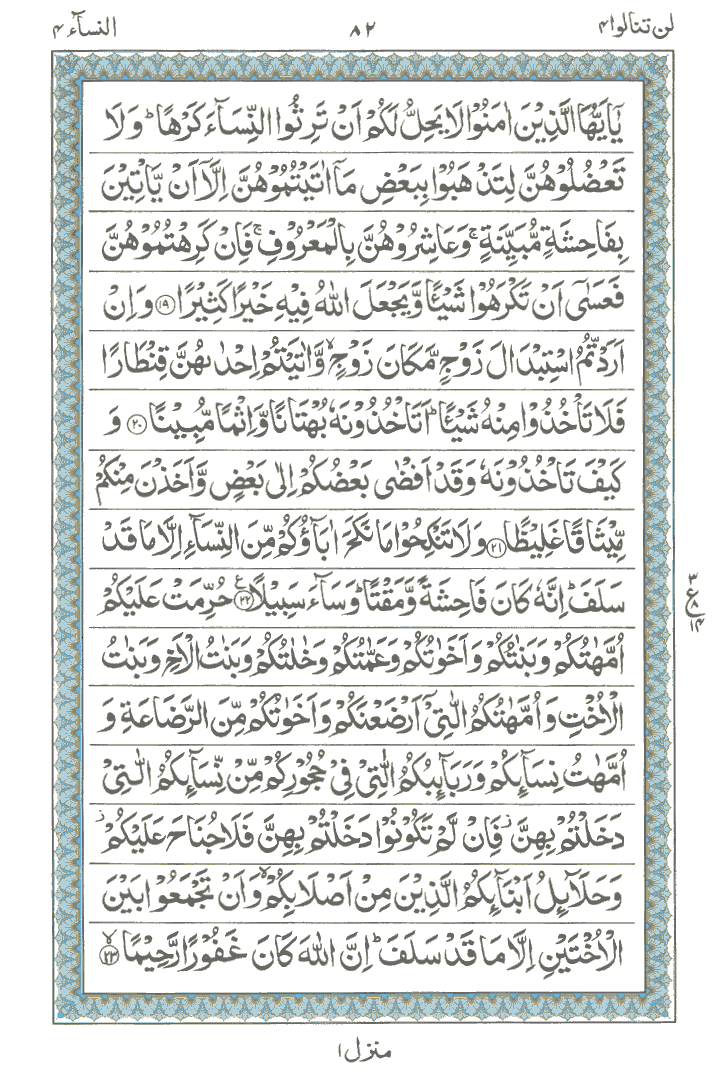 لن تنالوا ۴ ۸۲ النسآء ۴
يٰۤاَيُّهَا الَّذِيْنَ اٰمَنُوْا لَا يَحِلُّ لَكُمْ اَنْ تَرِثُوا النِّسَآءَ كَرْهًا ؕ وَلَا
تَعْضُلُوْهُنَّ لِتَذْهَبُوْا بِبَعْضِ مَاۤ اٰتَيْتُمُوْهُنَّ اِلَّاۤ اَنْ يَّاْتِيْنَ
بِفَاحِشَةٍ مُّبَيِّنَةٍ ۚ وَعَاشِرُوْهُنَّ بِالْمَعْرُوْفِ ۚ فَاِنْ كَرِهْتُمُوْهُنَّ
فَعَسٰۤى اَنْ تَكْرَهُوْا شَيْـًٔا وَّيَجْعَلَ اللّٰهُ فِيْهِ خَيْرًا كَثِيْرًا ﴿۱۹﴾ وَاِنْ
اَرَدْتُّمُ اسْتِبْدَالَ زَوْجٍ مَّكَانَ زَوْجٍ ۙ وَّاٰتَيْتُمْ اِحْدٰىهُنَّ قِنْطَارًا
فَلَا تَاْخُذُوْا مِنْهُ شَيْـًٔا ؕ اَتَاْخُذُوْنَهٗ بُهْتَانًا وَّاِثْمًا مُّبِيْنًا ﴿۲۰﴾ وَ
كَيْفَ تَاْخُذُوْنَهٗ وَقَدْ اَفْضٰى بَعْضُكُمْ اِلٰى بَعْضٍ وَّاَخَذْنَ مِنْكُمْ
مِّيْثَاقًا غَلِيْظًا ﴿۲۱﴾ وَلَا تَنْكِحُوْا مَا نَكَحَ اٰبَآؤُكُمْ مِّنَ النِّسَآءِ اِلَّا مَا قَدْ
سَلَفَ ؕ اِنَّهٗ كَانَ فَاحِشَةً وَّمَقْتًا ؕ وَسَآءَ سَبِيْلًا ﴿۲۲﴾ ع حُرِّمَتْ عَلَيْكُمْ
۳ ع ۸ ۱۴
اُمَّهٰتُكُمْ وَبَنٰتُكُمْ وَاَخَوٰتُكُمْ وَعَمّٰتُكُمْ وَخٰلٰتُكُمْ وَبَنٰتُ الْاَخِ وَبَنٰتُ
الْاُخْتِ وَاُمَّهٰتُكُمُ الّٰتِيْۤ اَرْضَعْنَكُمْ وَاَخَوٰتُكُمْ مِّنَ الرَّضَاعَةِ وَ
اُمَّهٰتُ نِسَآئِكُمْ وَرَبَآئِبُكُمُ الّٰتِيْ فِيْ حُجُوْرِكُمْ مِّنْ نِّسَآئِكُمُ الّٰتِيْ
دَخَلْتُمْ بِهِنَّ ؗ فَاِنْ لَّمْ تَكُوْنُوْا دَخَلْتُمْ بِهِنَّ فَلَا جُنَاحَ عَلَيْكُمْ ؗ
وَحَلَآئِلُ اَبْنَآئِكُمُ الَّذِيْنَ مِنْ اَصْلَابِكُمْ ۙ وَاَنْ تَجْمَعُوْا بَيْنَ
الْاُخْتَيْنِ اِلَّا مَا قَدْ سَلَفَ ؕ اِنَّ اللّٰهَ كَانَ غَفُوْرًا رَّحِيْمًا ﴿۲۳﴾ ۙ
منزل ۱